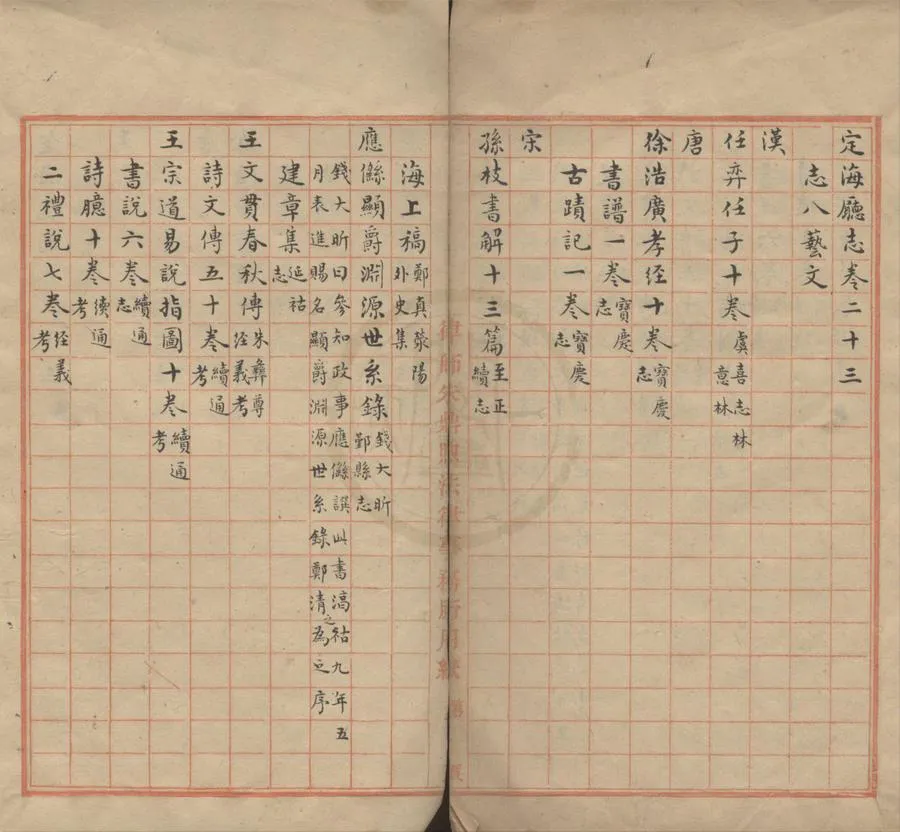 定海廳志卷二十三
志八藝文
漢
任弈任子十卷虞喜志林意林
唐
徐浩廣孝经十卷寶慶志
書譜一卷寶慶志
古蹟記一卷寶慶志
宋
孫枝書解十三篇至正續志
律師朱法律事務所用紙 第 頁
海上稿鄭真荥陽外史集
應㒡顯爵淵源世系錄錢大昕鄞縣志
錢大昕曰參知政事應㒡譔此書湻祐九年五
月表進賜名顯爵淵源世系錄鄭清之為之序
建章集延祐志
王文貫春秋傳朱彝尊经義考
詩文傳五十卷續通考
王宗道易說指圖十卷續通考
書說六卷續通志
詩臆十卷續通考
二禮說七卷经義考